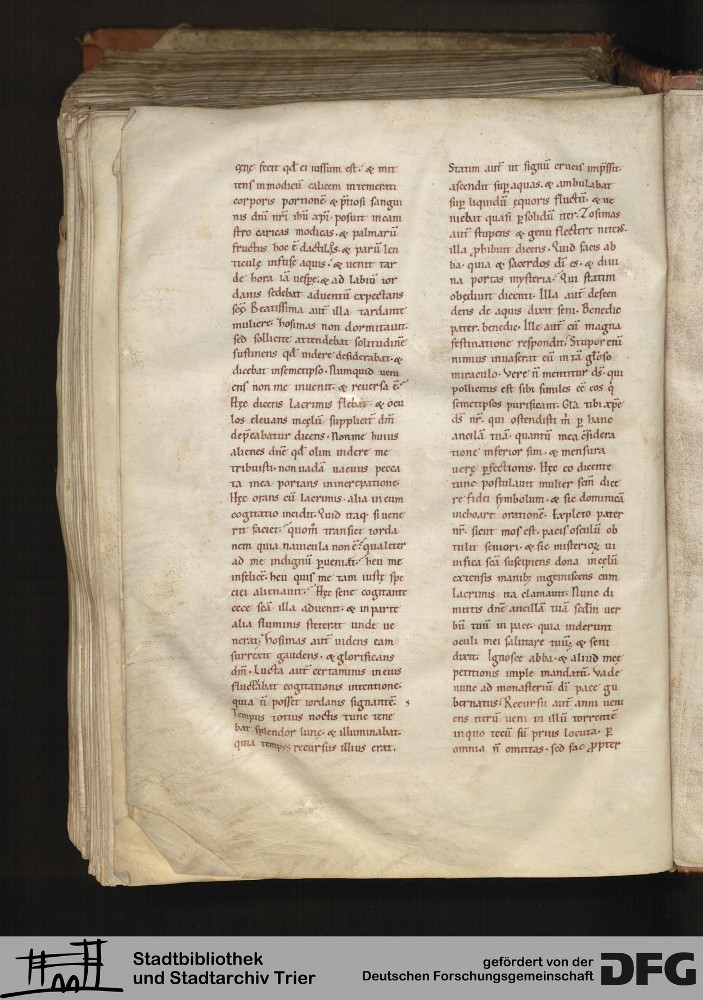 cęnę fecit qd̄ ei iussum est. & mit
tens inmodicū calicem intemerati
corporis portionē & p̄tiosi sangui
nis dn̄i nr̄i ihū xp̄i. posuit incani
stro caricas modicas. & palmarū
fructus hoc ē dactilos. & parū len
ticulę infuse aquis. & uenit tar
de hora iā uesp̄e. & ad labiū ior
danis sedebat aduentū expectans
scę. Beatissima aut̄ illa tardante
muliere. hosimas non dormitauit.
sed sollicite attendebat solitudinē
sustinens qd̄ uidere desiderabat. &
dicebat insemetipso. Numquid ueni
ens non me inuenit. & reuersa ē.
Hęc dicens lacrimis flebat. & ocu
los eleuans incęlū supplicit̄ dm̄
dep̄cabatur dicens. Nonme huius
alienes dnē qd̄ olim uidere me
tribuisti. non uadā uacuus pecca
ta mea portans inincrepatione.
Hęc orans cū lacrimis. alia ineum
cogitatio incidit. Quid itaq; si uene
rit faciet. quom̄ transiet iorda
nem quia nauicula non ē. qualiter
ad me indignū p̄ueniat. heu me
infelicē. heu quis me tam iustę spe
ciei alienauit. Hęc sene cogitante
ecce scā illa aduenit. & inparte
alia fluminis steterat unde ue
nerat. hosimas aut̄ uidens eam
surrexit gaudens. & glorificans
dm̄. Lucta aut̄ certaminis ineius
fluctuabat cogitationis intentione.
quia n̄ posset iordanis signantē.
Tempus totius noctis tunc tene
bat splendor lunę. & illuminabat.
quia tempus recursus illius erat.
Statim aut̄ ut signū crucis imp̄ssit.
ascendit sup̄ aquas. & ambulabat
sup̄ liquidū ęquoris fluctū. & ue
niebat quasi p̄ solidū iter. Zosimas
aut̄ stupens & genu flectere nitens.
illa p̄hibuit dicens. Quid facis ab
ba. quia & sacerdos dī es. & diui
na portas mysteria. Qui statim
obediuit dicenti. Illa aut̄ descen
dens de aquis dixit seni. Benedic
pater. benedic. Ille aut̄ cū magna
festinatione respondit. Stupor enī
nimius inuaserat eū in tā gl̄oso
miraculo. Vere n̄ mentitur ds̄. qui
pollicitus est sibi similes eē eos q̄
semetipsos purificant. Gl̄a tibi xp̄e
ds̄ nr̄. qui ostendisti m̄ p hanc
ancillā tuā. quantū mea c̄sidera
tione inferior sim. & mensura
uerę p̄fectionis. Hęc eo dicente
tunc postulauit mulier sc̄m dice
re fidei symbolum. & sic dominicā
inchoare orationē. Expleto pater
nr̄. sicut mos est. pacis osculū ob
tulit seniori. & sic misterioꝝ ui
uifica scā suscipiens dona incęlū
extensis manib; ingemiscens cum
lacrimis ita clamauit. Nunc di
mittis dnē ancillā tuā scdm̄ uer
bū tuū in pace. quia uiderunt
oculi mei salutare tuū. & seni
dixit. Ignosce abba. & aliud meę
petitionis imple mandatū. Vade
nunc ad monasteriū dī pace gu
bernatus. Recursu aut̄ anni ueni
ens iterū ueni in illū torrentē
inquo tecū fui prius locuta. p̄
omnia n̄ omittas. sed fac p̄pter
Stadtbibliothek
und Stadtarchiv Trier
gefördert von der
Deutschen Forschungsgemeinschaft
DFG